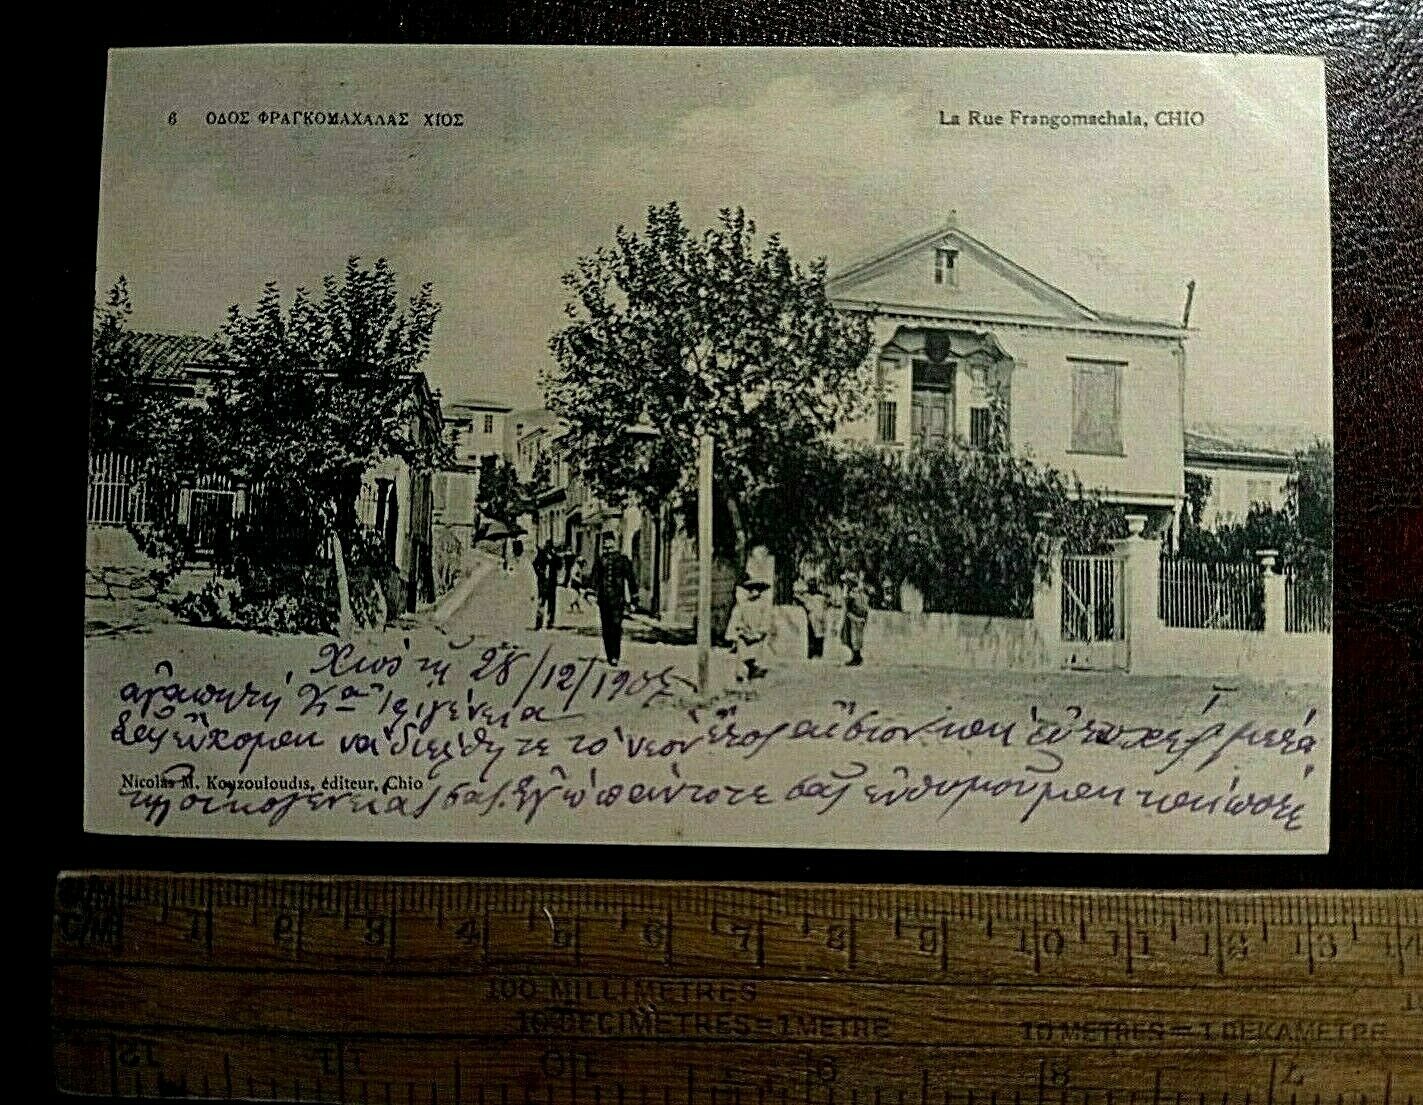 6 ΟΔΟΣ ΦΡΑΓΚΟΜΑΧΑΛΑΣ ΧΙΟΣ
La Rue Frangomachala, CHIO
Χίος τῇ 28/12/1905
ἀγαπητή Κα Ἰφιγένεια
Σᾶς εὔχομαι νά διέλθητε τό νέον ἔτος αἴσιον και εὐτυχές μετά
Nicolas M. Kouzouloudis, éditeur, Chio
τῆς οἰκογενείας σας. Ἐγώ πάντοτε σᾶς ἐνθυμοῦμαι
M/M
C/M 1 2 3 4 5 6 7 8 9 10 11 12 13 14
100 MILLIMETRES
10 DECIMETRES = 1 METRE
10 METRES = 1 DEKAMETRE
12 11 10 9 8 7